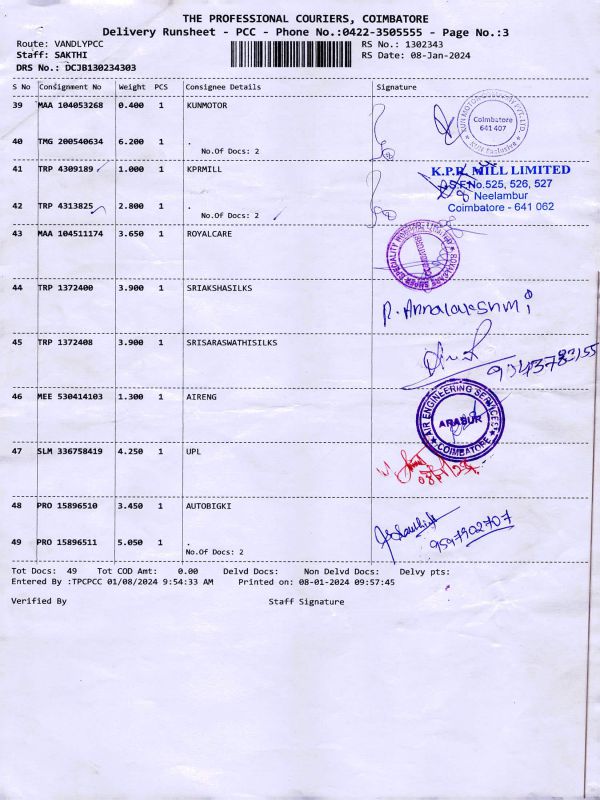 THE PROFESSIONAL COURIERS, COIMBATORE
Delivery Runsheet - PCC - Phone No.:0422-3505555 - Page No.:3
Route: VANDLYPCC RS No.: 1302343
Staff: SAKTHI RS Date: 08-Jan-2024
DRS No.: DCJB130234303
S No Consignment No Weight PCS Consignee Details Signature
39 MAA 104053268 0.400 1 KUNMOTOR
KUN MOTOR COMPANY PVT. LTD.
Coimbatore
641 407
KUN Exclusive
40 TMG 200540634 6.200 1 .
No.Of Docs: 2
41 TRP 4309189 1.000 1 KPRMILL
K.P.R. MILL LIMITED
S.F.No.525, 526, 527
Neelambur
Coimbatore - 641 062
42 TRP 4313825 2.800 1 .
No.Of Docs: 2
43 MAA 104511174 3.650 1 ROYALCARE
44 TRP 1372400 3.900 1 SRIAKSHASILKS
R. Annalakshmi
45 TRP 1372408 3.900 1 SRISARASWATHISILKS
46 MEE 530414103 1.300 1 AIRENG
AIR ENGINEERING SERVICES
ARASUR
COIMBATORE
47 SLM 336758419 4.250 1 UPL
48 PRO 15896510 3.450 1 AUTOBIGKI
49 PRO 15896511 5.050 1 .
9597902707
No.Of Docs: 2
Tot Docs: 49 Tot COD Amt: 0.00 Delvd Docs: Non Delvd Docs: Delvy pts:
Entered By :TPCPCC 01/08/2024 9:54:33 AM Printed on: 08-01-2024 09:57:45
Verified By Staff Signature